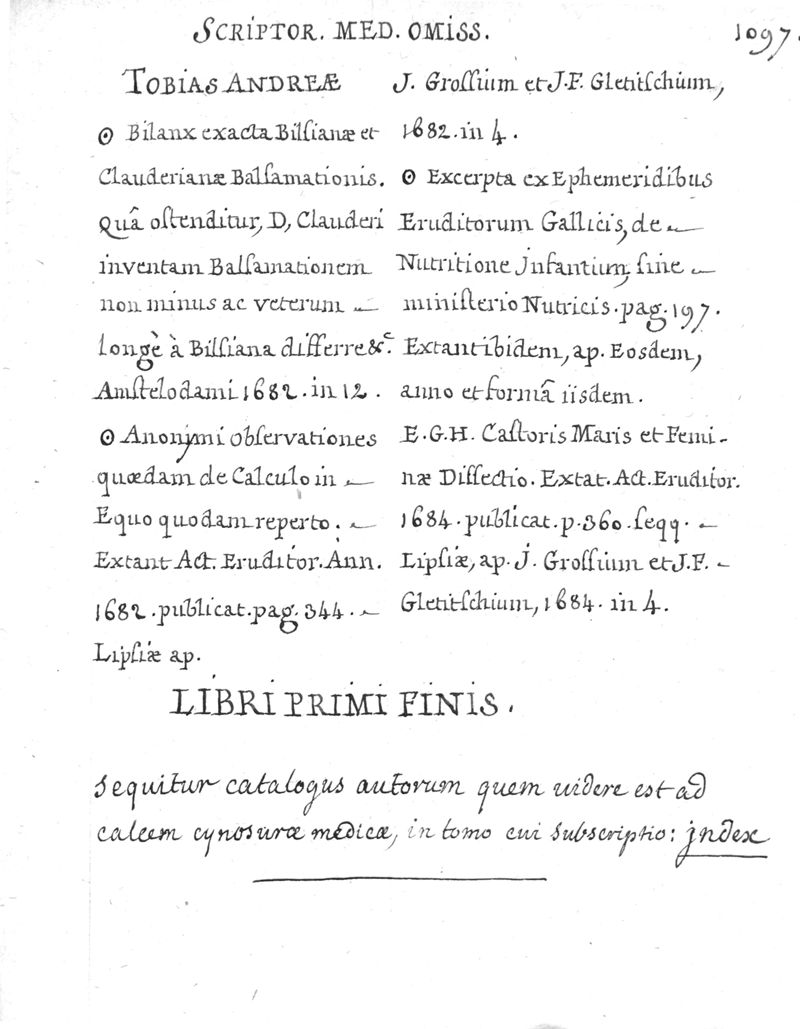 SCRIPTOR. MED. OMISS.
1097.
TOBIAS ANDREÆ
⊙ Bilanx exacta Bilſianæ et
Clauderianæ Balſamationis.
Quâ oſtenditur, D, Clauderi
inventam Balſamationem
non minus ac veterum
longè à Bilſiana differre &c.
Amſtelodami 1682. in 12.
⊙ Anonymi obſervationes
quædam de Calculo in
Equo quodam reperto.
Extant Act. Eruditor. Ann.
1682. publicat. pag. 344.
Lipſiæ ap.
J. Groſſium et J.F. Gletitſchium,
1682. in 4.
⊙ Excerpta ex Ephemeridibus
Eruditorum Gallicis, de
Nutritione Jnfantium, ſine
miniſterio Nutricis. pag. 197.
Extant ibidem, ap. Eosdem,
anno et formâ iisdem.
E.G.H. Caſtoris Maris et Femi-
næ Diſſectio. Extat. Act. Eruditor.
1684. publicat. p. 360. ſeqq.
Lipſiæ, ap. J. Groſſium et J.F.
Gletitſchium, 1684. in 4.
LIBRI PRIMI FINIS.
Sequitur catalogus autorum quem uidere est ad
calcem cynosuræ medicæ, in tomo cui subscriptio: jndex